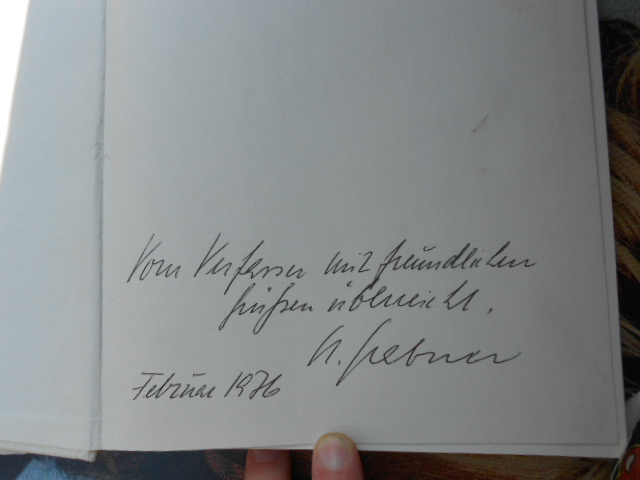 Vom Verfasser mit freundlichen
Grüßen überreicht.
Februar 1976